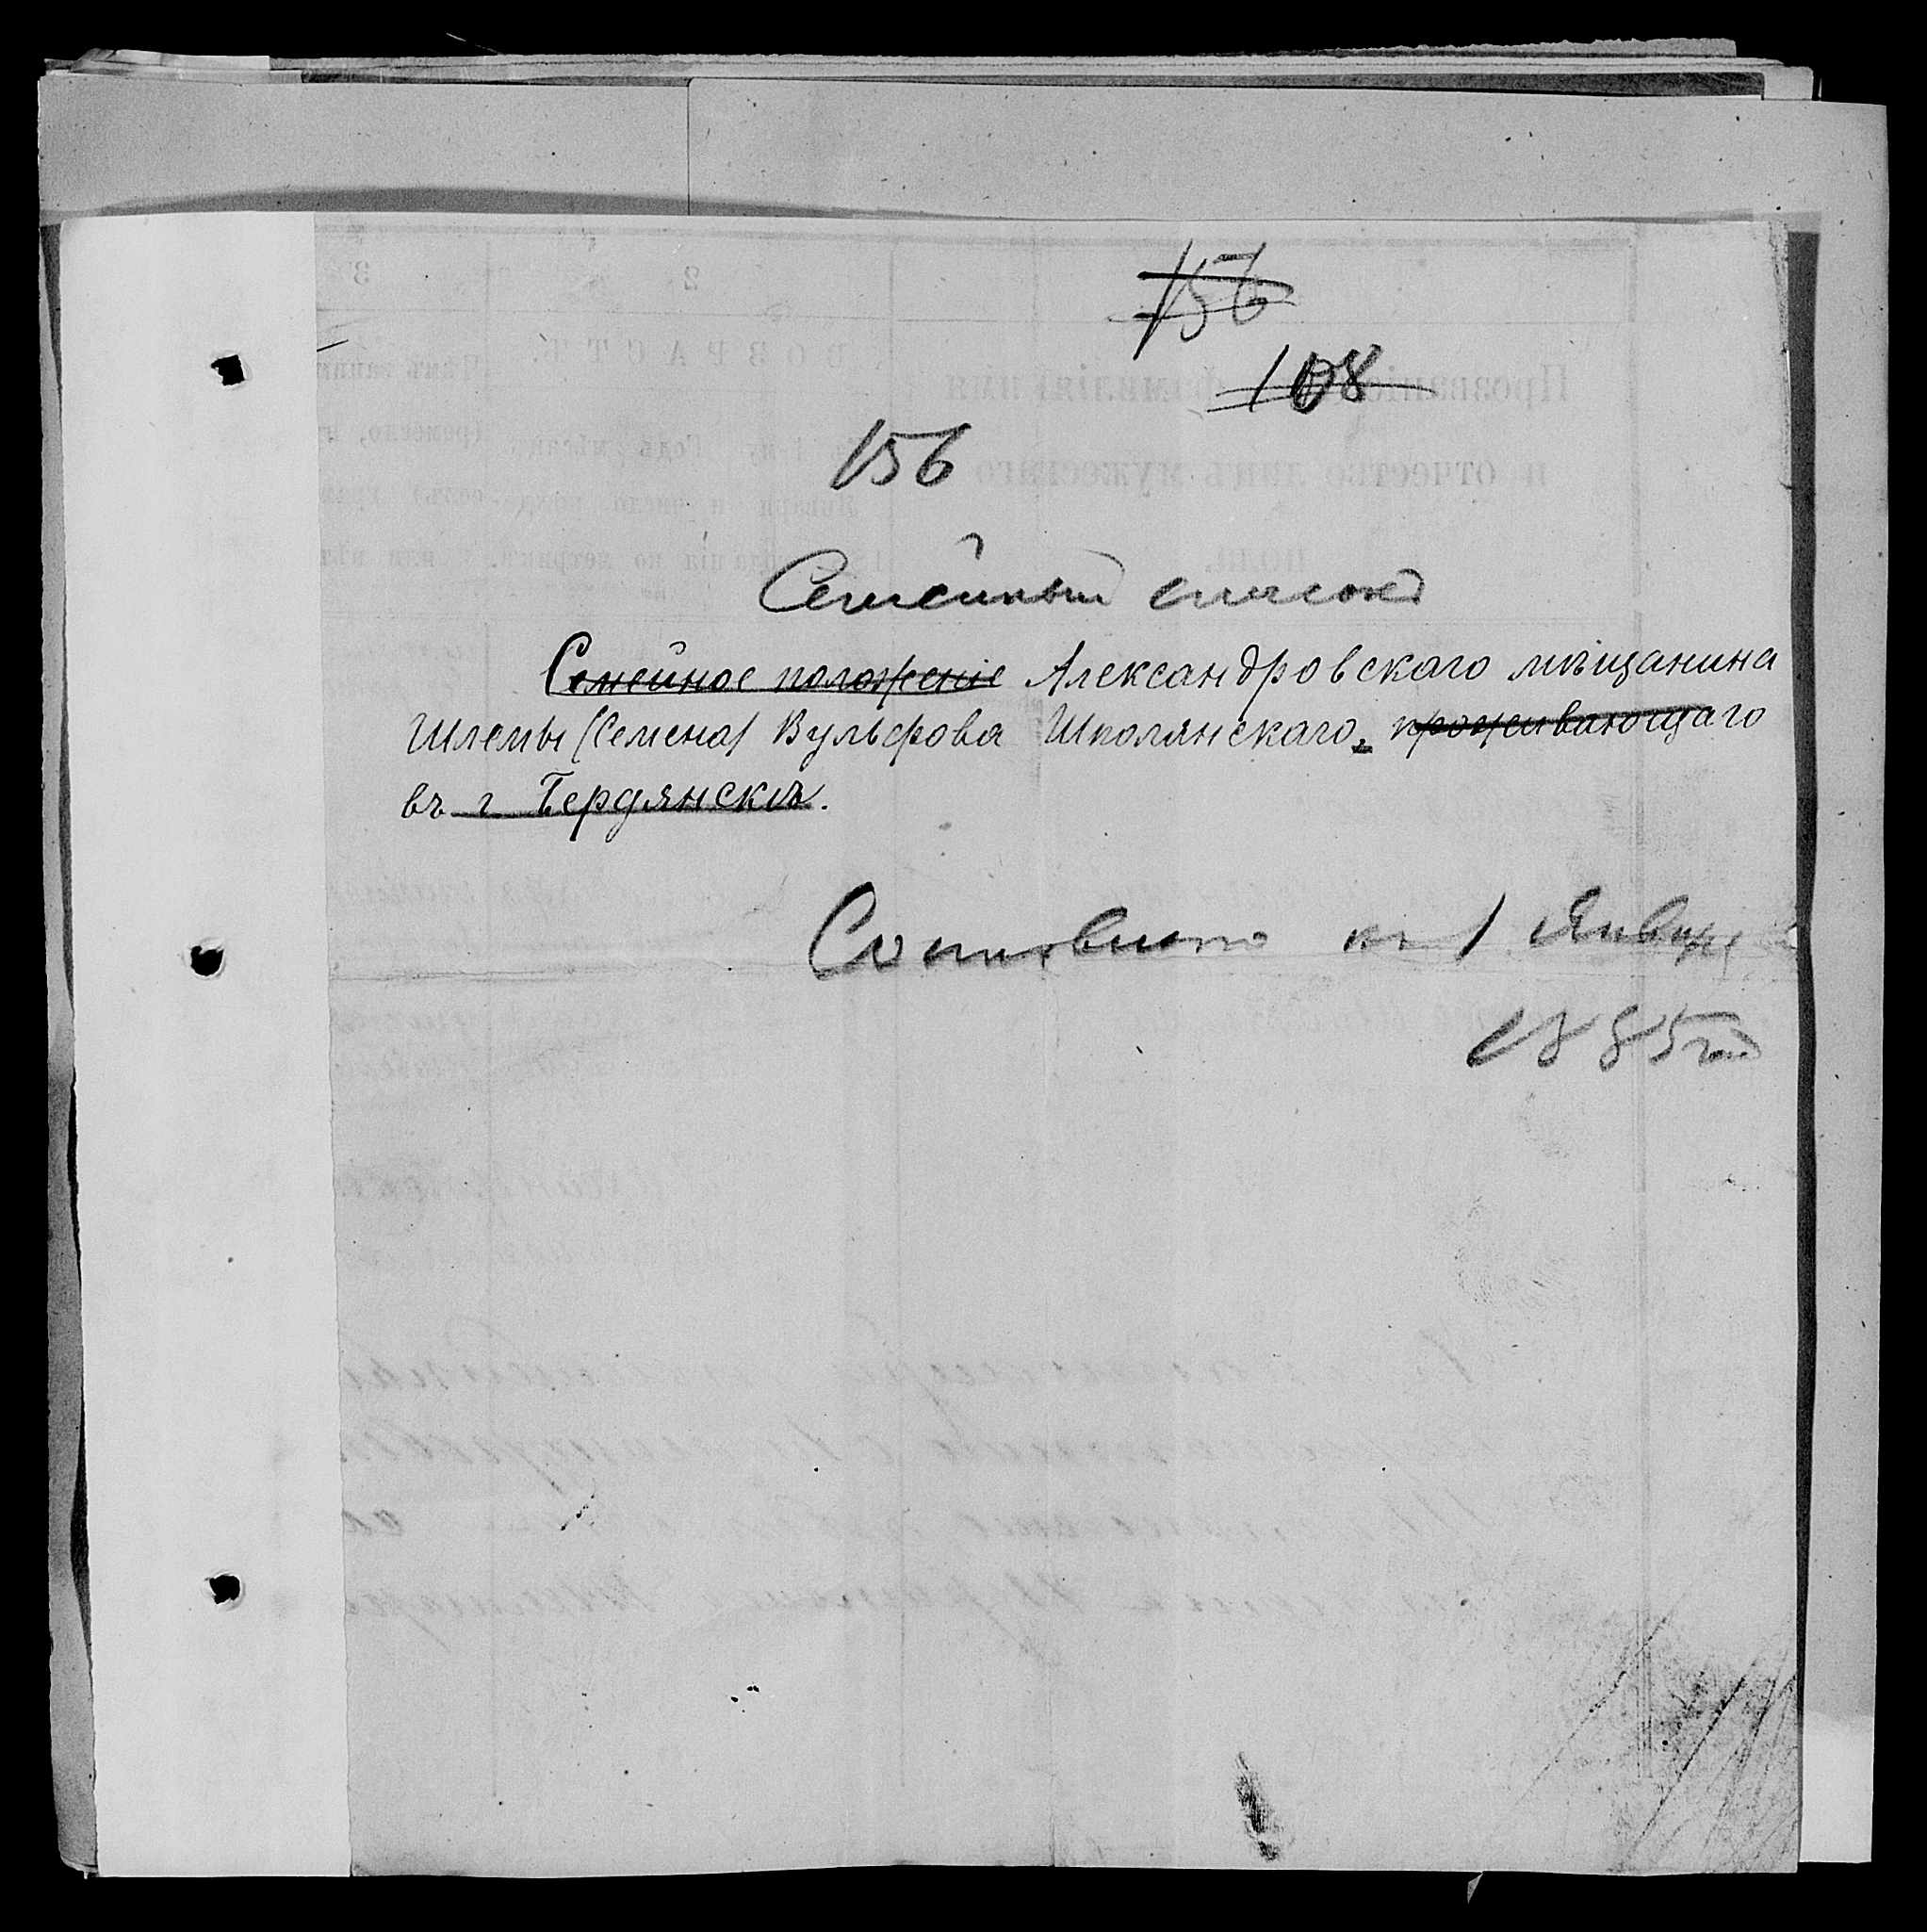 156
108
156
Семейный список
Семейное положеніе Александровскаго мѣщанина
Шлемы (Семена) Вульфова Шполянскаго, проживающаго
въ г Бердянскѣ.
Составлено къ 1 Января
1885 года